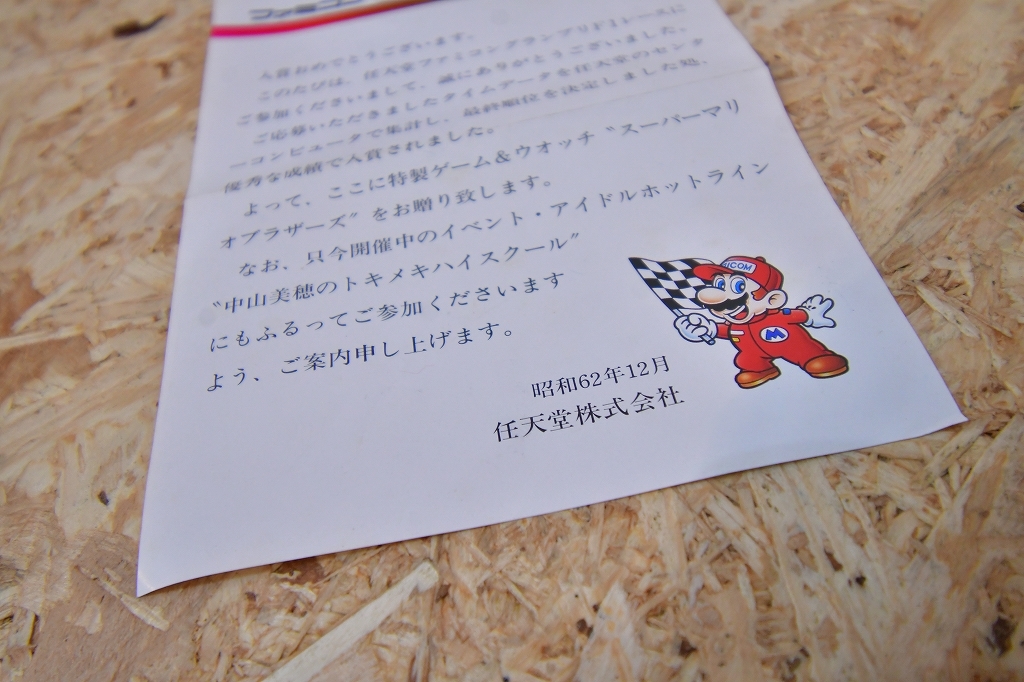 ファミコン
入賞おめでとうございます。
このたびは、任天堂ファミコングランプリF1レースに
ご参加くださいまして、誠にありがとうございました。
ご応募いただきましたタイムデータを任天堂のセンタ
ーコンピュータで集計し、最終順位を決定しました処、
優秀な成績で入賞されました。
よって、ここに特製ゲーム&ウオッチ〝スーパーマリ
オブラザーズ〟をお贈り致します。
なお、只今開催中のイベント・アイドルホットライン
〝中山美穂のトキメキハイスクール〟
にもふるってご参加くださいます
よう、ご案内申し上げます。
ICOM
M
昭和62年12月
任天堂株式会社